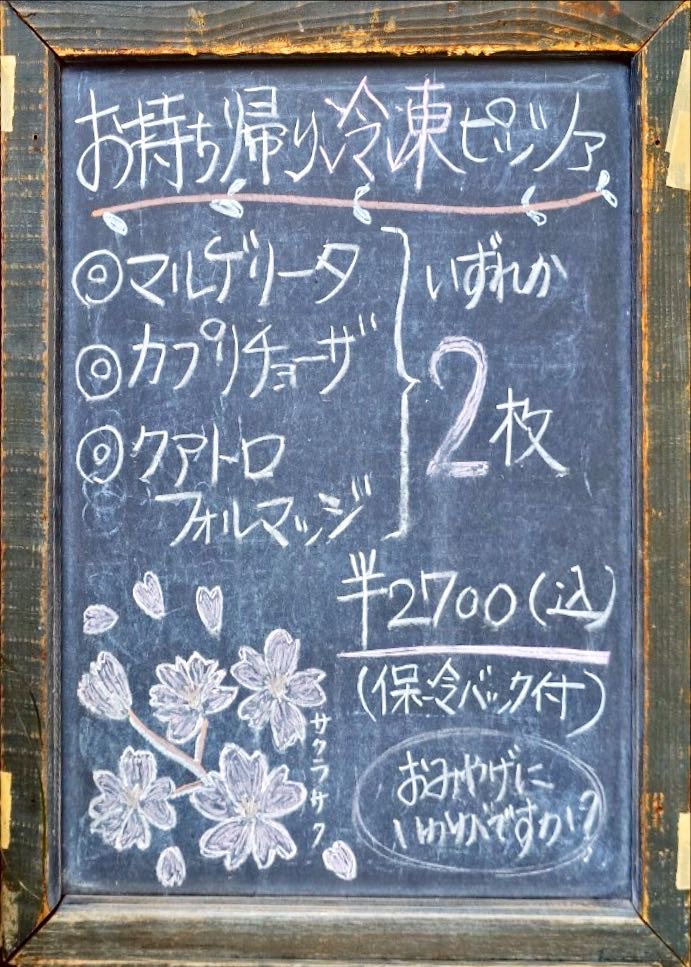 お持ち帰り冷凍ピッツァ
◎マルゲリータ
◎カプリチョーザ
◎クアトロ
フォルマッジ
いずれか
2枚
¥2700(込)
(保冷バック付)
サクラサク
おみやげに
いかがですか?